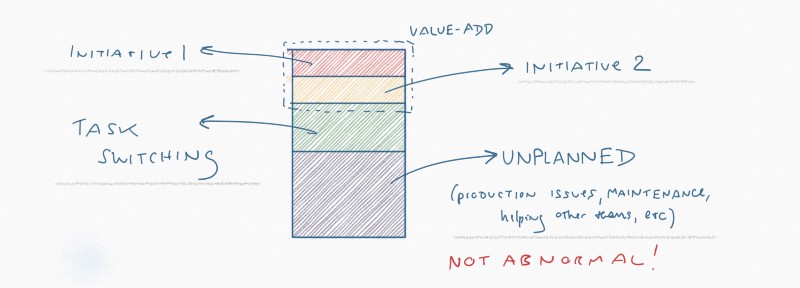 VALUE-ADD
INITIATIVE 1
INITIATIVE 2
TASK
SWITCHING
UNPLANNED
(PRODUCTION ISSUES, MAINTENANCE,
helping other teams, etc)
NOT ABNORMAL!